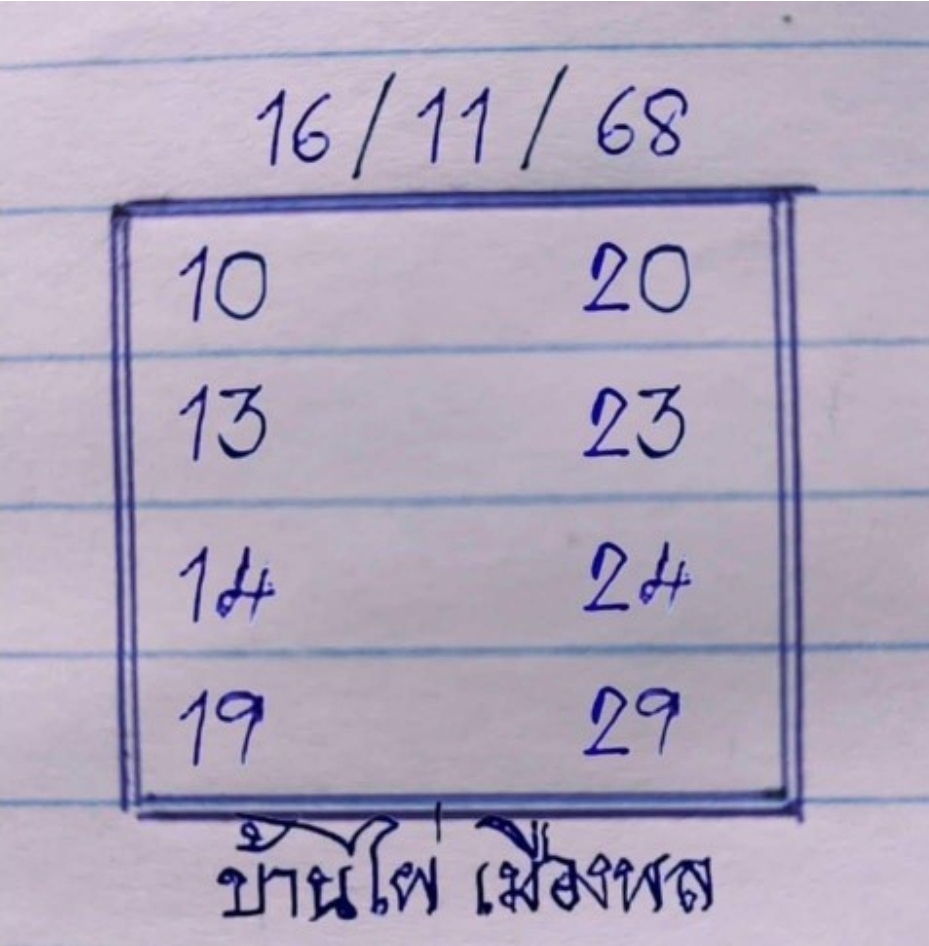 16/11/68
10 20
13 23
14 24
19 29
บ้านไผ่ เมืองพล